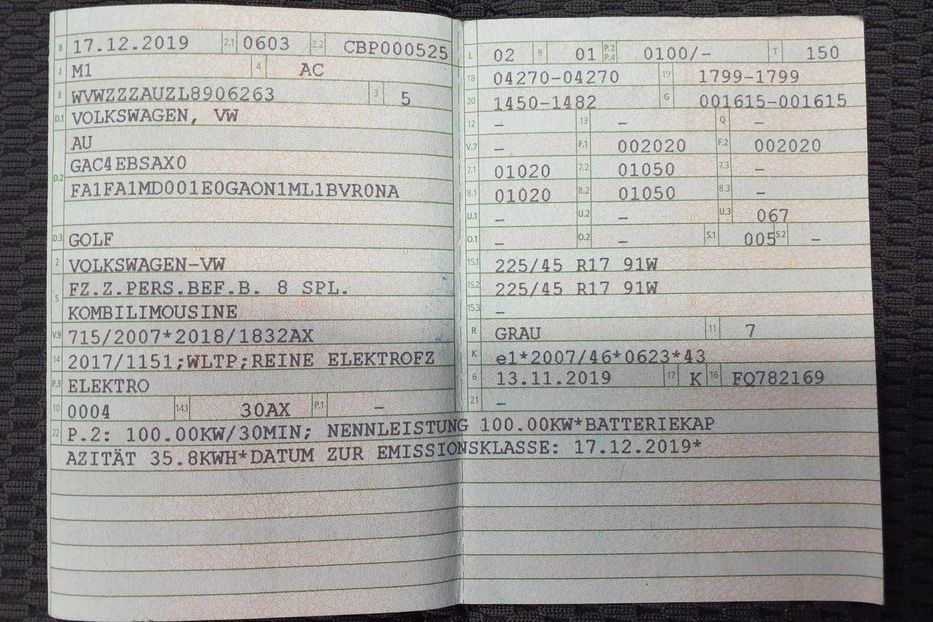 B 17.12.2019 2.1 0603 2.2 CBP000525
J M1 4 AC
E WVWZZZAUZL8906263 3 5
D.1 VOLKSWAGEN, VW
AU
D.2 GAC4EBSAX0
FA1FA1MD001E0GAON1ML1BVR0NA
D.3 GOLF
2 VOLKSWAGEN-VW
5 FZ.Z.PERS.BEF.B. 8 SPL.
KOMBILIMOUSINE
V.9 715/2007*2018/1832AX
14 2017/1151;WLTP;REINE ELEKTROFZ
P.3 ELEKTRO
10 0004 14.1 30AX P.1 -
L 02 9 01 P.2 P.4 0100/- T 150
18 04270-04270 19 1799-1799
20 1450-1482 G 001615-001615
12 - 13 - Q -
V.7 - F.1 002020 F.2 002020
7.1 01020 7.2 01050 7.3 -
8.1 01020 8.2 01050 8.3 -
U.1 - U.2 - U.3 067
O.1 - O.2 - S.1 005 S.2 -
15.1 225/45 R17 91W
15.2 225/45 R17 91W
15.3 -
R GRAU 11 7
K e1*2007/46*0623*43
6 13.11.2019 17 K 16 FQ782169
21 -
22 P.2: 100.00KW/30MIN; NENNLEISTUNG 100.00KW*BATTERIEKAP
AZITÄT 35.8KWH*DATUM ZUR EMISSIONSKLASSE: 17.12.2019*